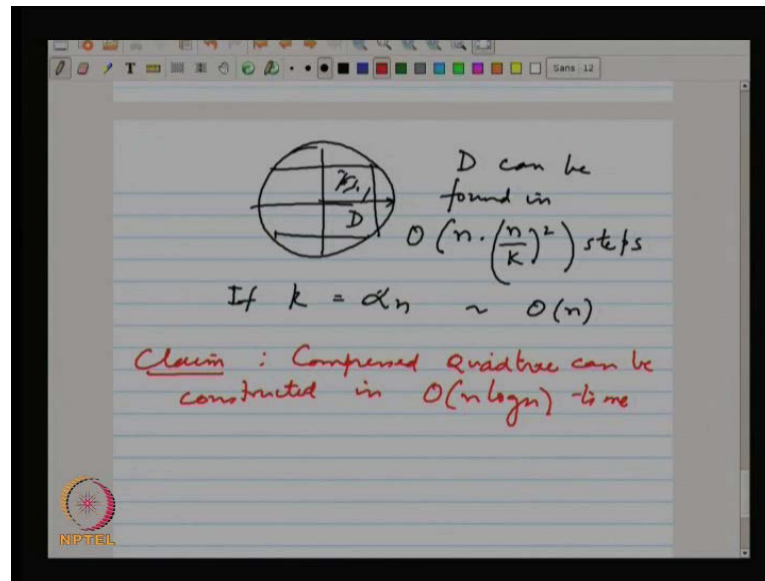 T
Sans 12
D can be
found in
D
O (n · (n/k)²) steps
If k = αn ~ O(n)
Claim : Compressed Quadtree can be
constructed in O(n log n) time
NPTEL